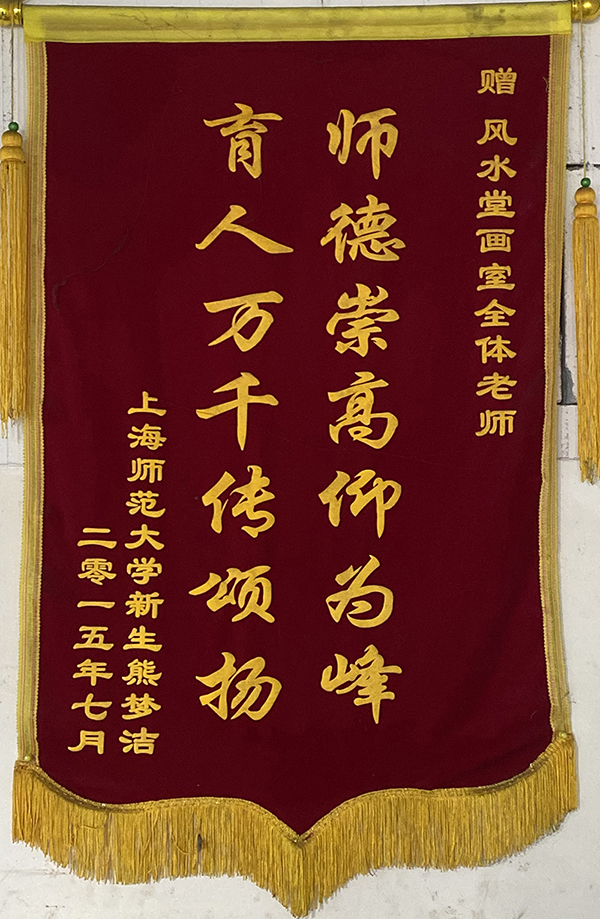 赠 风水堂画室全体老师
师德崇高仰为峰
育人万千传颂扬
上海师范大学新生熊梦洁
二零一五年七月